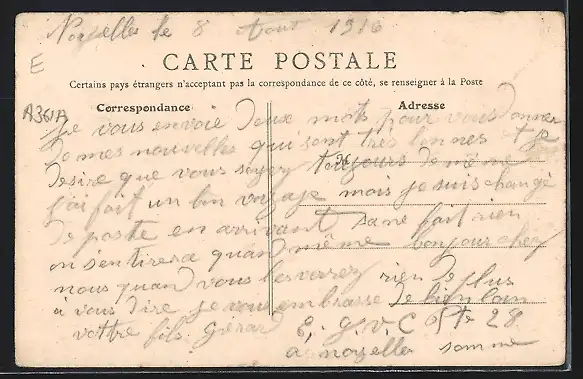 Noyelles le 8 Aout 1916
E
CARTE POSTALE
Certains pays étrangers n'acceptent pas la correspondance de ce côté, se renseigner à la Poste
A361A
Correspondance
Adresse
Je vous envoie deux mots pour vous donner
de mes nouvelles qui sont très bonnes et je
desire que vous soyez toujours de même
j'ai fait un bon voyage mais je suis changé
de poste en arrivant sa ne fait rien
on sentirera quand même bonjour chez
nous quand vous les verrez rien de plus
à vous dire je vous embrasse de bien loin
vottre fils Gerar
E. G. V. C Pte 28
a noyelles somme